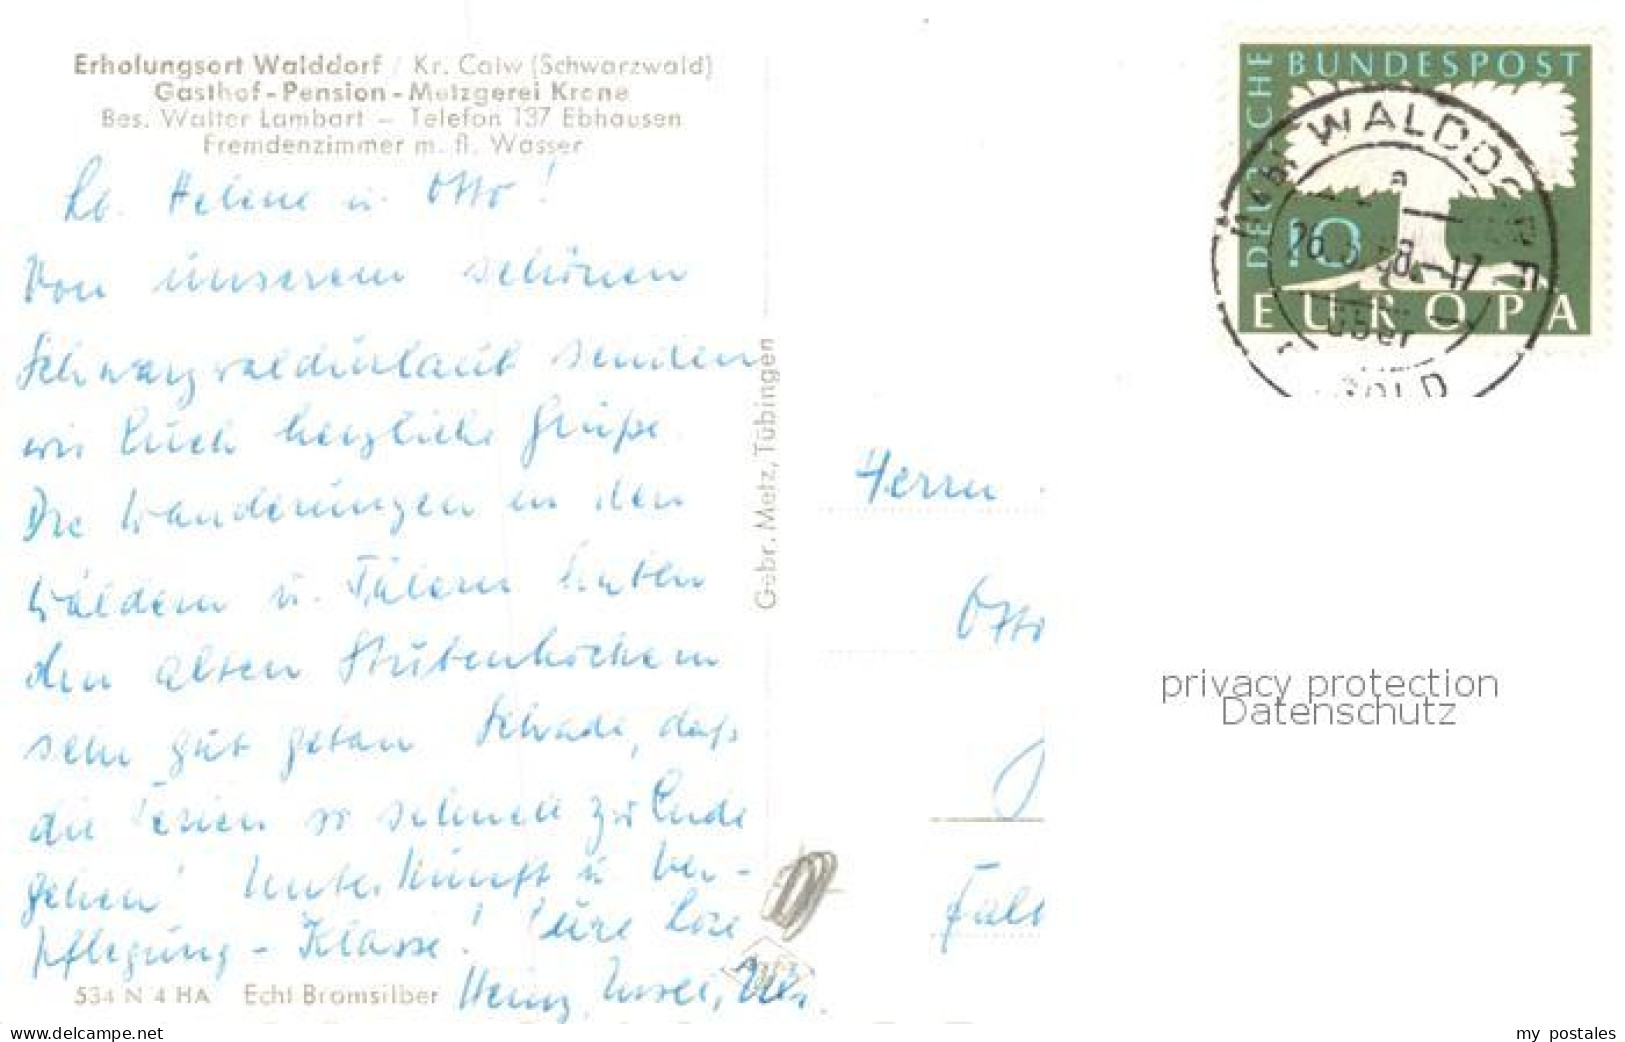 Erholungsort Walddorf / Kr. Calw (Schwarzwald)
Gasthof-Pension-Metzgerei Krone
Bes. Walter Lambart – Telefon 137 Ebhausen
Fremdenzimmer m. fl. Wasser
Lb. Helene u. Otto!
Von unserem schönen
Schwarzwaldurlaub senden
wir Euch herzliche Grüße.
Die Wanderungen in den
Wäldern u. Tälern haben
den alten Stubenhockern
sehr gut getan. Schade, daß
die Ferien so schnell zu Ende
gehen! Unterkunft u. Ver-
pflegung - Klasse! Eure Lore
Heinz,
534 N 4 HA Echt Bromsilber
Gebr. Metz, Tübingen
DEUTSCHE BUNDESPOST
10
EUROPA
WALDDORF
über
Herrn
Otto
privacy protection
Datenschutz
www.delcampe.net
my_postales